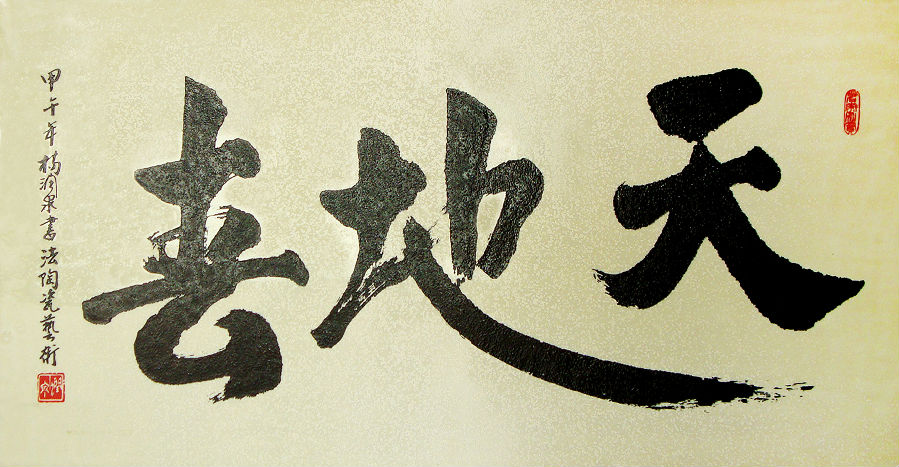 天地春
甲午年楊润泉書法陶瓷藝術